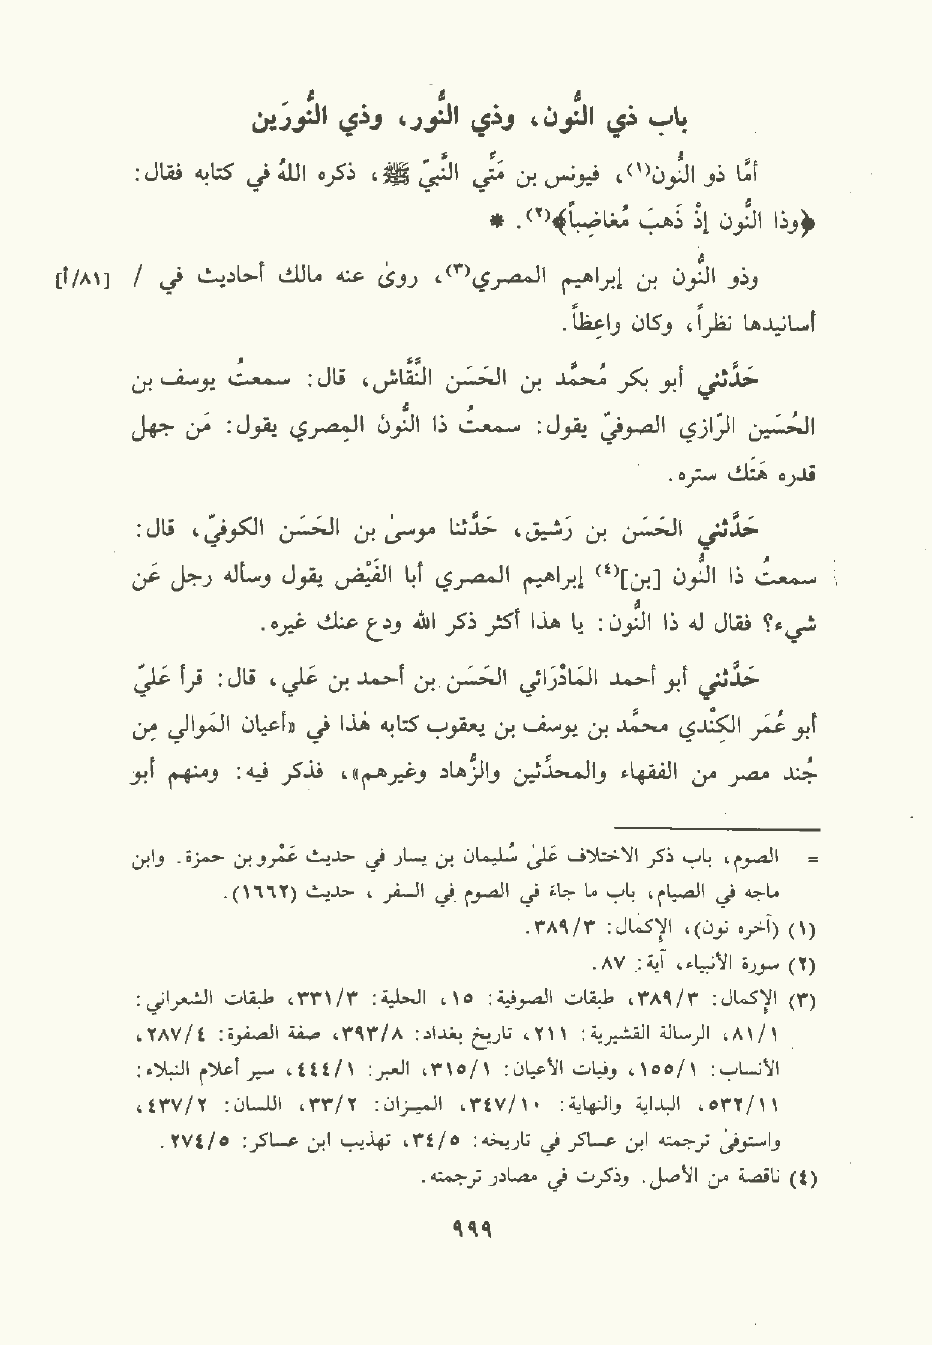 باب ذي النُّون، وذي النُّور، وذي النُّورَين
أمّا ذو النُّون(١)، فيونس بن مَتّى النَّبيّ ﷺ، ذكره اللهُ في كتابه فقال:
﴿وذا النُّون إذْ ذَهبَ مُغاضِباً﴾(٢). *
وذو النُّون بن إبراهيم المصري(٣)، روىٰ عنه مالك أحاديث في / [٨١/أ]
أسانيدها نظراً، وكان واعِظاً.
حَدَّثني أبو بكر مُحمَّد بن الحَسَن النَّقَّاش، قال: سمعتُ يوسف بن
الحُسَين الرّازي الصوفيّ يقول: سمعتُ ذا النُّون المِصري يقول: مَن جهل
قدره هَتَك ستره.
حَدَّثني الحَسَن بن رَشيق، حَدَّثنا موسىٰ بن الحَسَن الكوفيّ، قال:
سمعتُ ذا النُّون [بن](٤) إبراهيم المصري أبا الفَيْض يقول وسأله رجل عَن
شيء؟ فقال له ذا النُّون: يا هذا أكثر ذكر الله ودع عنك غيره.
حَدَّثني أبو أحمد المَاذْرَائي الحَسَن بن أحمد بن عَلي، قال: قرأ عَليّ
أبو عُمَر الكِنْدي محمَّد بن يوسف بن يعقوب كتابه هَذا في «أعيان المَوالي مِن
جُند مصر من الفقهاء والمحدِّثين والزُّهاد وغيرهم»، فذكر فيه: ومنهم أبو
= الصوم، باب ذكر الاختلاف عَلىٰ سُليمان بن يسار في حديث عَمْرو بن حمزة. وابن
ماجه في الصيام، باب ما جاءَ في الصوم في السفر، حديث (١٦٦٢).
(١) (آخره نون)، الإكمال: ٣/٣٨٩.
(٢) سورة الأنبياء، آية: ٨٧.
(٣) الإكمال: ٣/٣٨٩، طبقات الصوفية: ١٥، الحلية: ٣/٣٣١، طبقات الشعراني:
١/٨١، الرسالة القشيرية: ٢١١، تاريخ بغداد: ٨/٣٩٣، صفة الصفوة: ٤/٢٨٧،
الأنساب: ١/١٥٥، وفيات الأعيان: ١/٣١٥، العبر: ١/٤٤٤، سير أعلام النبلاء:
١١/٥٣٢، البداية والنهاية: ١٠/٣٤٧، الميزان: ٢/٣٣، اللسان: ٢/٤٣٧،
واستوفىٰ ترجمته ابن عساكر في تاريخه: ٥/٣٤، تهذيب ابن عساكر: ٥/٢٧٤.
(٤) ناقصة من الأصل. وذكرت في مصادر ترجمته.
٩٩٩